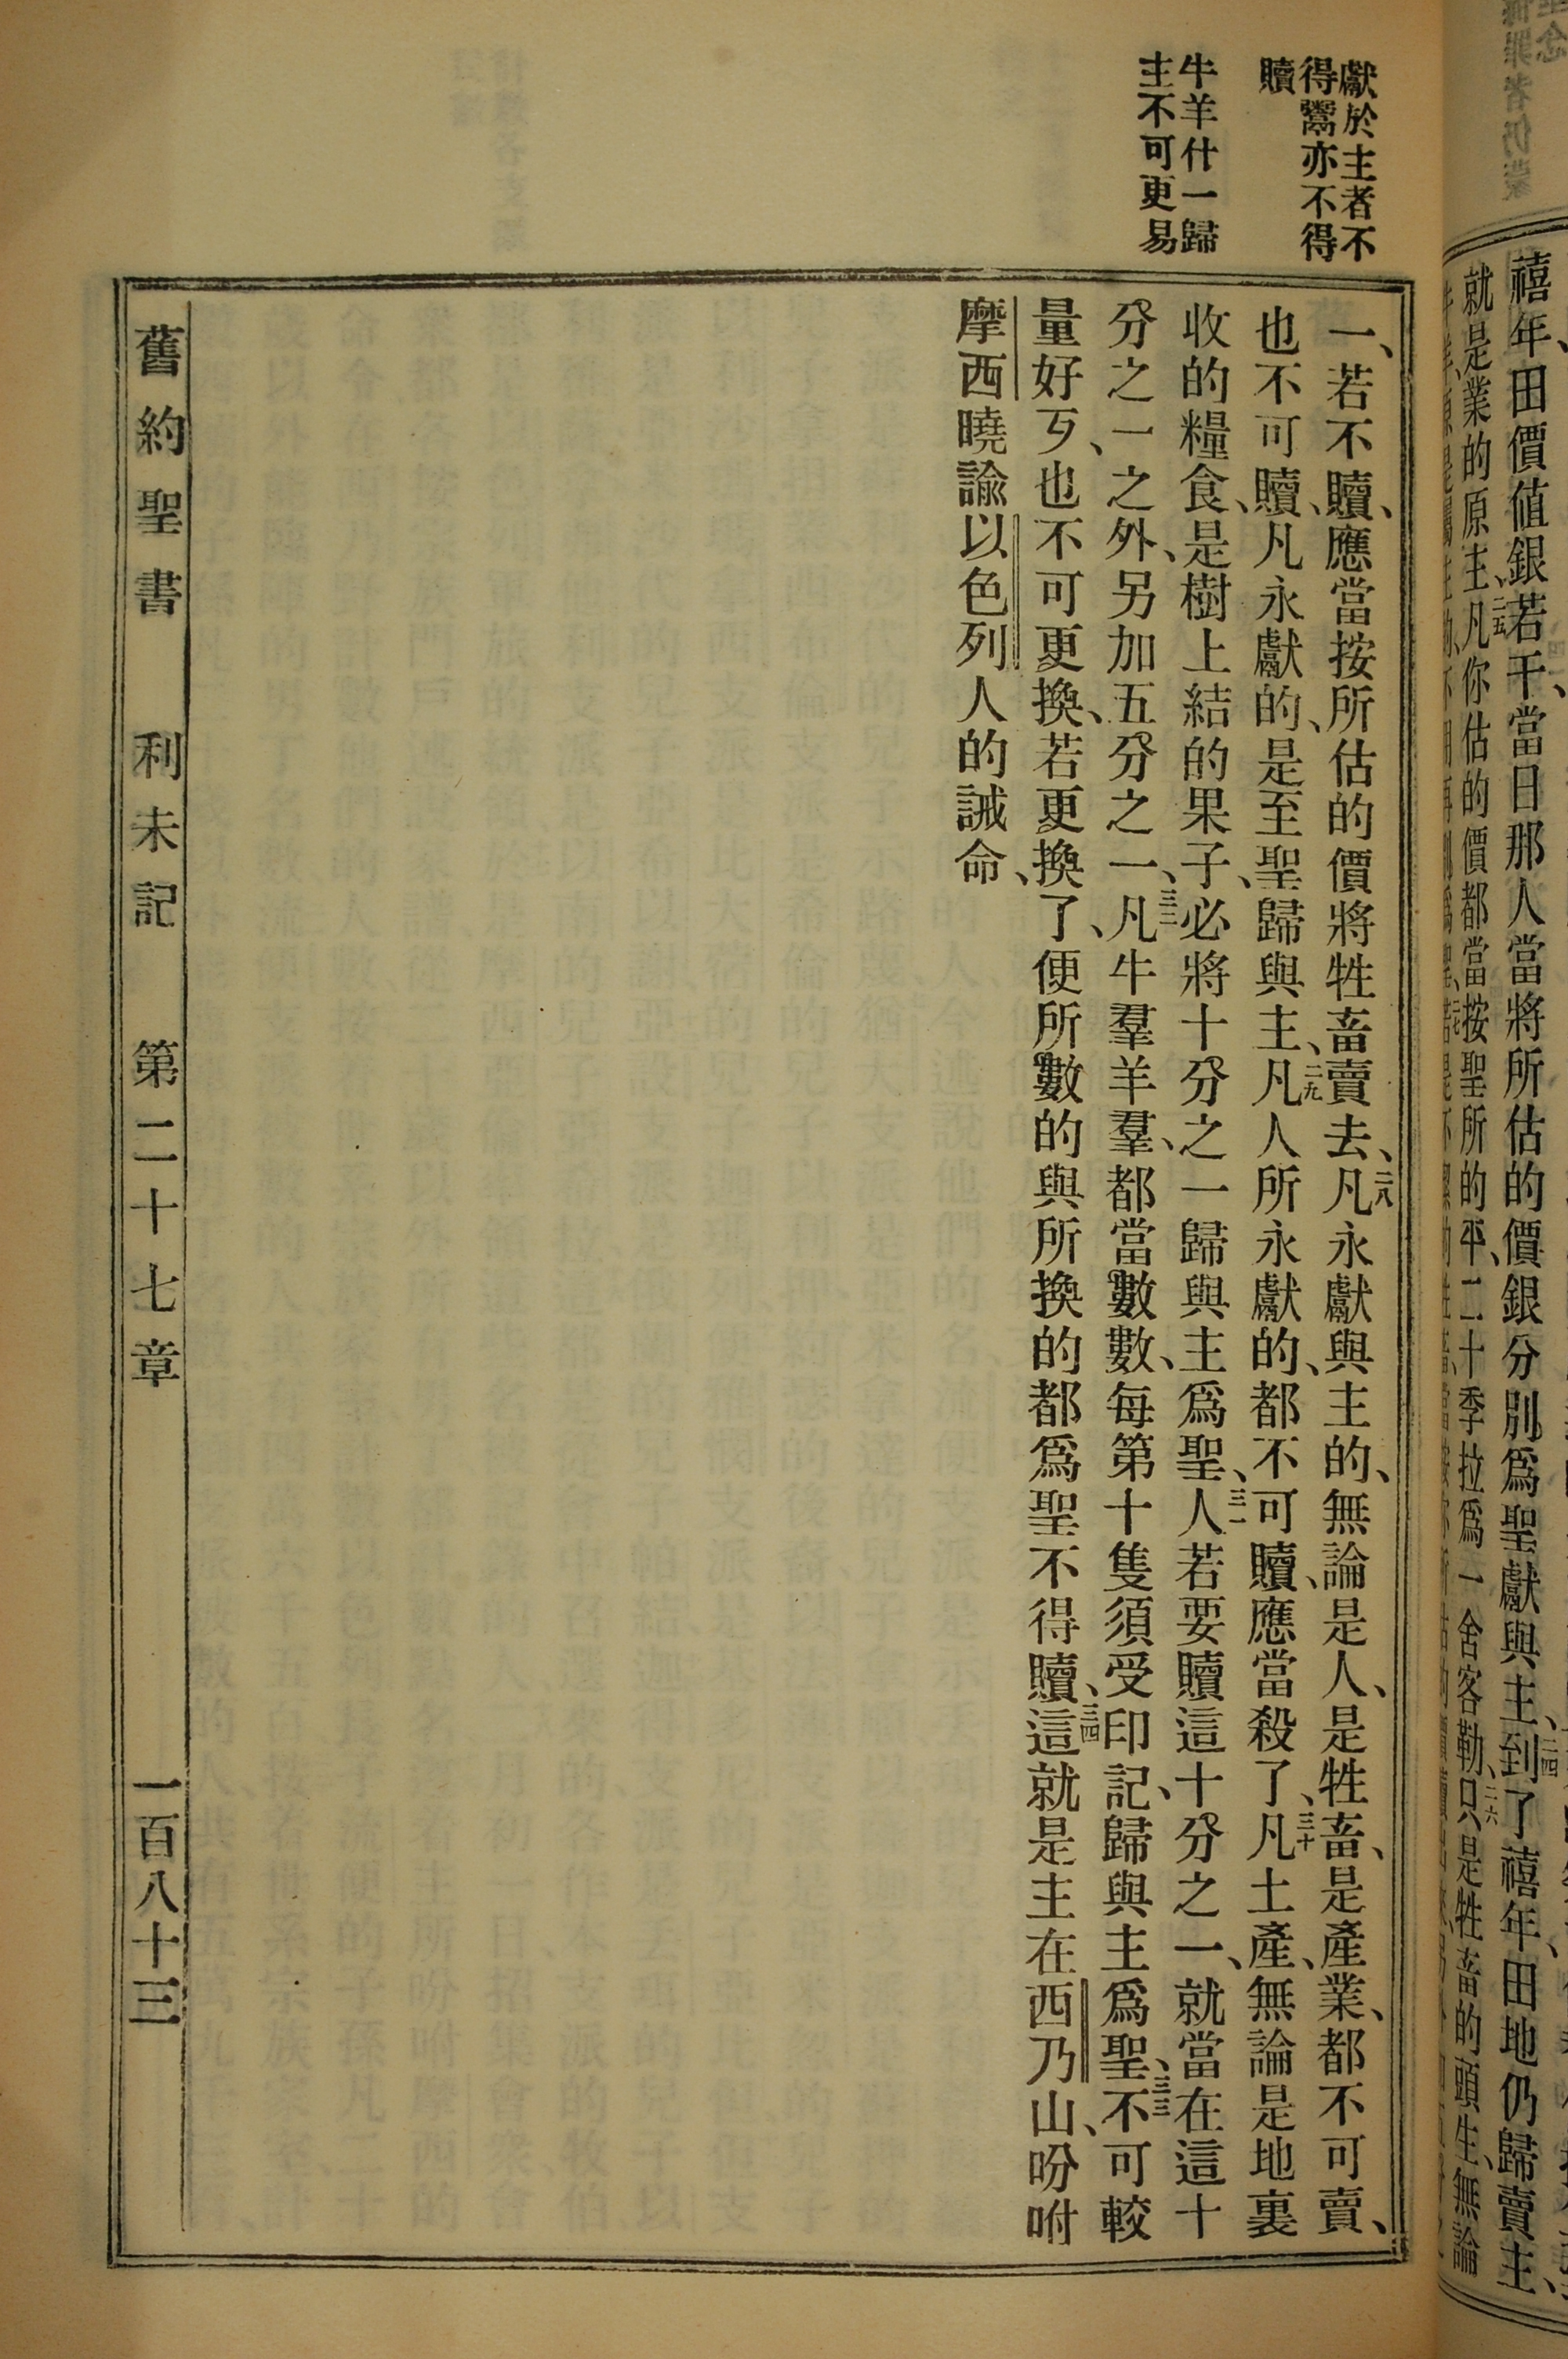 獻於主者不
得鬻亦不得
贖
牛羊什一歸
主不可更易
禧年、田價値銀若干、當日那人當將所估的價銀分別爲聖獻與主、二四到了禧年、田地仍歸賣主、
就是業的原主、二五凡你估的價都當按聖所的平、二十季拉爲一舍客勒、二六只是牲畜的頭生、無論
一、若不贖、應當按所估的價將牲畜賣去、二八凡永獻與主的、無論是人、是牲畜、是產業、都不可賣、
也不可贖、凡永獻的、是至聖歸與主、二九凡人所永獻的、都不可贖、應當殺了、三十凡土產、無論是地裏
收的糧食、是樹上結的果子、必將十分之一歸與主爲聖、三一人若要贖這十分之一、就當在這十
分之一之外、另加五分之一、三二凡牛羣羊羣、都當數數、每第十隻須受印記、歸與主爲聖、三三不可較
量好歹、也不可更換、若更換了、便所數的與所換的都爲聖不得贖、三四這就是主在西乃山、吩咐
摩西曉諭以色列人的誡命、
舊約聖書 利未記 第二十七章 一百八十三